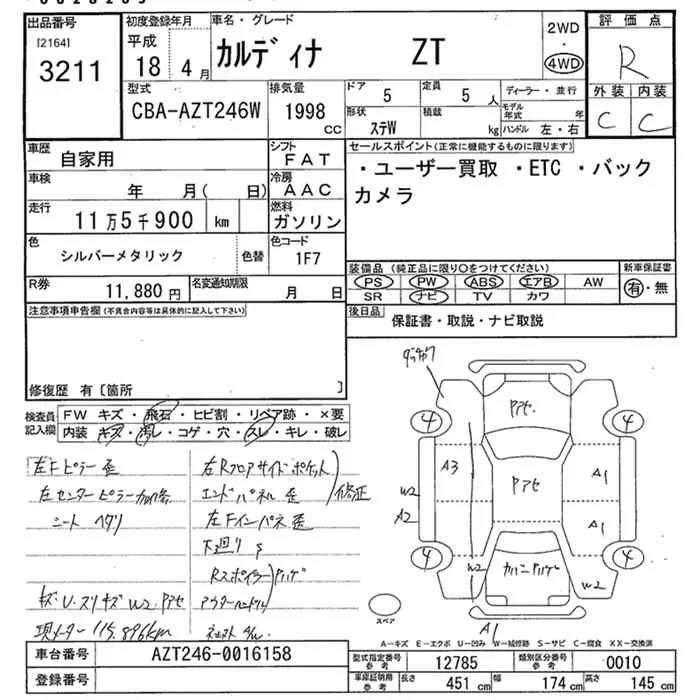 出品番号
[2164]
3211
初度登録年月
平成
18年4月
車名・グレード
カルディナ ZT
2WD
・
4WD
評価点
R
外装 内装
C C
型式
CBA-AZT246W
排気量
1998
cc
ドア
5
定員
5人
形状
ステW
積載
kg
ディーラー・並行
モデル年式 年
ハンドル 左・右
車歴
自家用
シフト
FAT
車検
年 月( 日)
冷房
AAC
走行
11万5千900 km
燃料
ガソリン
色
シルバーメタリック
色替
色コード
1F7
R券
11,880円
名変通知期限
月 日
セールスポイント(正常に機能するものに限ります)
・ユーザー買取 ・ETC ・バック
カメラ
装備品(純正品に限り○をつけてください)
PS PW ABS エアB AW
SR ナビ TV カワ
新車保証書
有・無
後日品
保証書・取説・ナビ取説
注意事項申告欄(不具合内容等は具体的に記入して下さい)
修復歴 有〔箇所 〕
検査員記入欄
FW キズ・飛石・ヒビ割・リペア跡・×要
内装 キズ・汚レ・コゲ・穴・スレ・キレ・破レ
左Fピラー歪
左センターピラー加修
シート ヘタリ
キズ U.スリキズ W2 アセ
現メーター 115,896km
右Rフロアサイドポケット
エンドパネル 歪
修正
左Fインパネ歪
下廻り S
Rスポイラー
アウターハンドル
ハゲ
アセ
アセ
4
4
4
4
A3
W2
A2
A1
A1
W2
W2
A1
スペア
A-キズ E-エクボ U-凹み W-補修跡 S-サビ C-腐食 XX-交換済
車台番号
AZT246-0016158
登録番号
型式指定番号
参考
12785
類別区分番号
参考
0010
車庫証明用
参考
長さ 451cm
幅 174cm
高さ 145cm